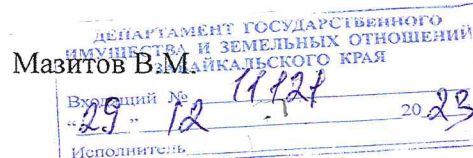 ДЕПАРТАМЕНТ ГОСУДАРСТВЕННОГО
ИМУЩЕСТВА И ЗЕМЕЛЬНЫХ ОТНОШЕНИЙ
ЗАБАЙКАЛЬСКОГО КРАЯ
Мазитов В.М.
Входящий № 11121
"29" 12 2023
Исполнитель